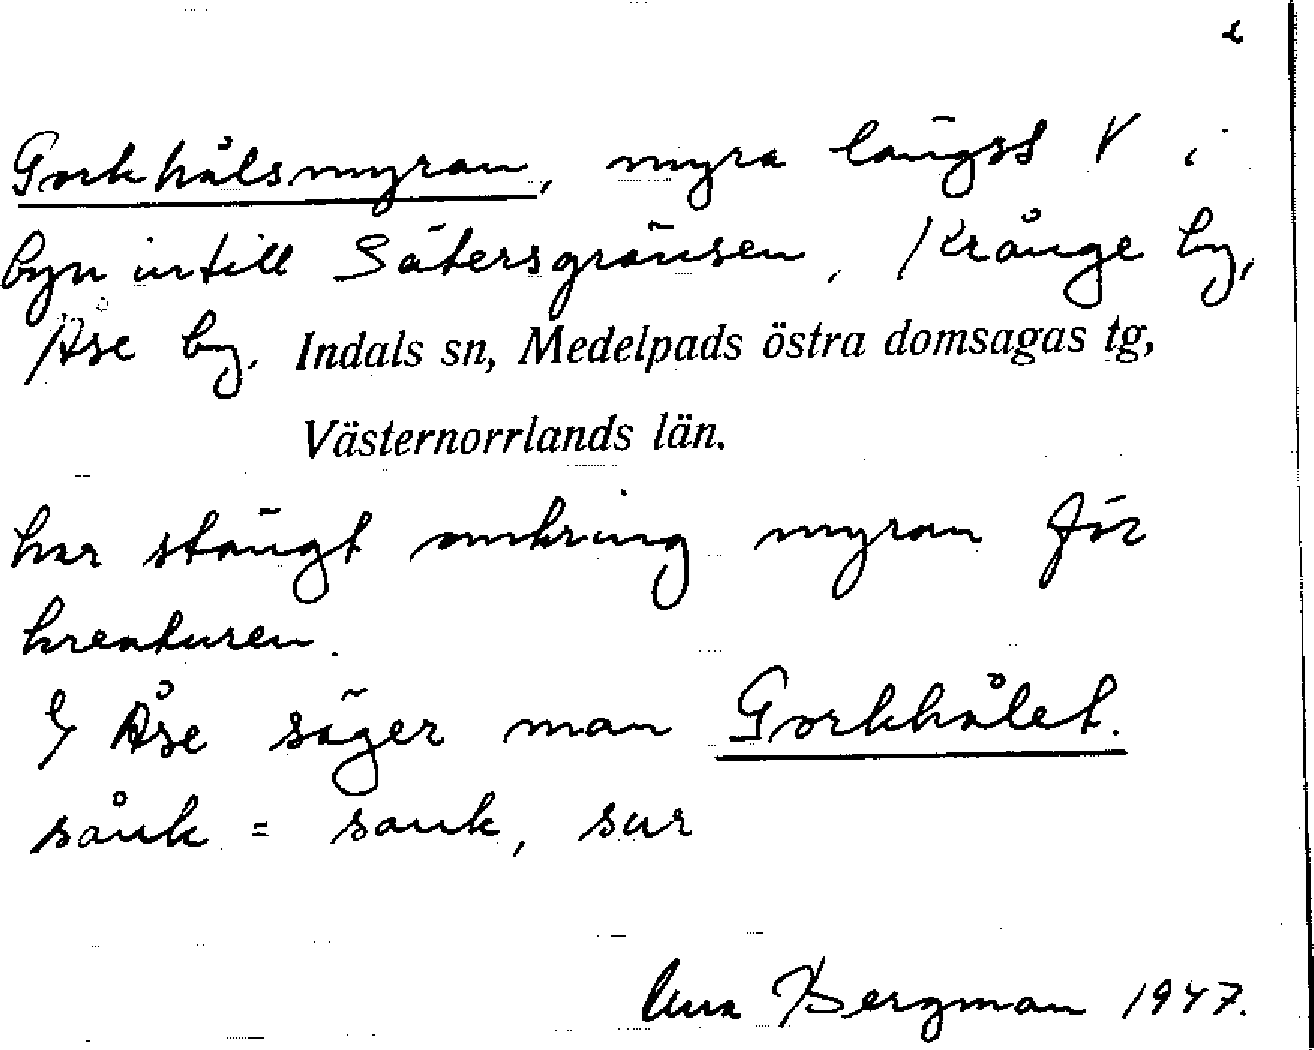 Gorkhålsmyran, myra längst V i
byn intill Sätersgränsen, Krånge by,
Åse by. Indals sn, Medelpads östra domsagas tg,
Västernorrlands län.
har stängt omkring myran för
kreaturen.
I Åse säger man Gorkhålet.
sånk = sank, sur
Bergman 1947.